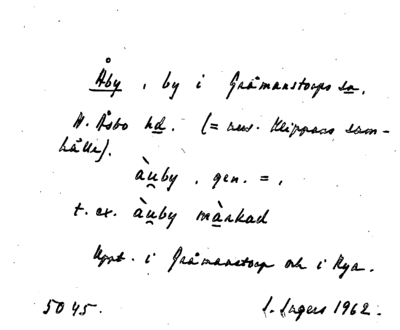 Åby, by i Gråmanstorps sn,
N. Åsbo hd. (= nuv. Klippans sam-
hälle).
àu̯by, gen. = ,
t. ex. àu̯by màrkad
Uppt. i Gråmanstorp och i Rya.
5045. 1962.